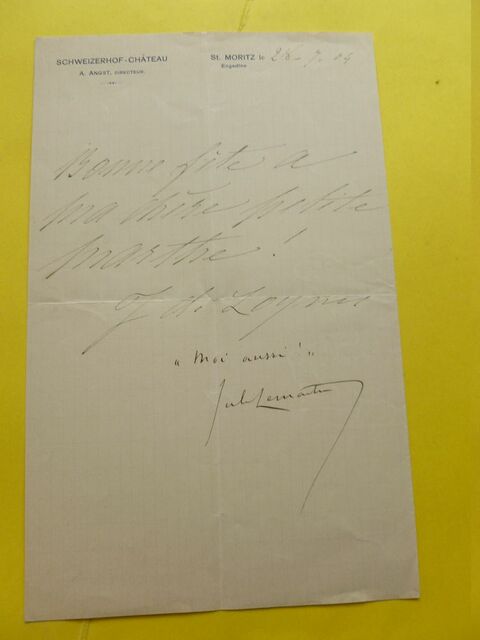 SCHWEIZERHOF-CHÂTEAU
A. ANGST, DIRECTEUR.
ST. MORITZ le 28-7.04
Engadine
Bonne fête a
ma chère petite
Marthe !
J de Loynes
"Moi aussi!"
Jules Lemaître